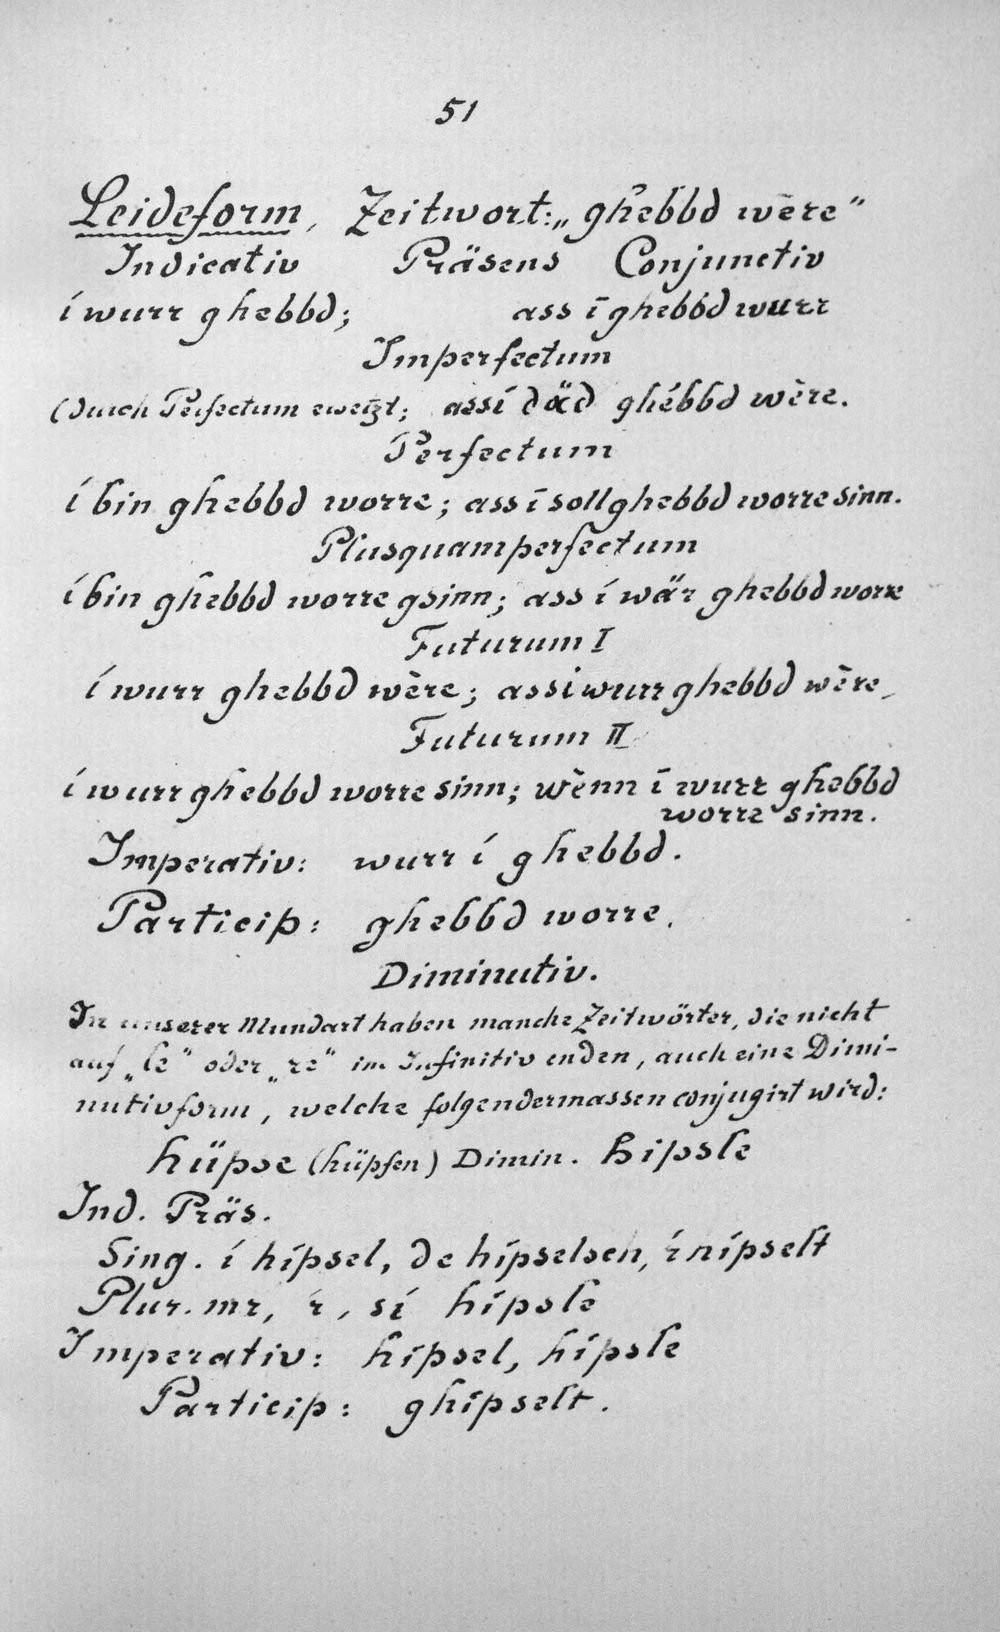 51
Leideform, Zeitwort: „ghebbd wère“
Indicativ Präsens Conjunctiv
í wurr ghebbd; ass ī ghebbd wurr
Imperfectum
(durch Perfectum ersetzt; assí däd ghébbd wère.
Perfectum
í bin ghebbd worre; ass ī soll ghebbd worre sinn.
Plusquamperfectum
í bin ghebbd worre gsinn; ass í wär ghebbd worre
Futurum I
í wurr ghebbd wère; ass i wurr ghebbd wère,
Futurum II
í wurr ghebbd worre sinn; wènn ī wurr ghebbd
worre sinn.
Imperativ: wurr í ghebbd.
Particip: ghebbd worre.
Diminutiv.
In unserer Mundart haben manche Zeitwörter, die nicht
auf „le“ oder „re“ im Infinitiv enden, auch eine Dimi-
nutivform, welche folgendermassen conjugirt wird:
hüpse (hüpfen) Dimin. hipsle
Ind. Präs.
Sing. í hípsel, de hípselsch, 'r hípselt
Plur. mr, 'r, sí hípsle
Imperativ: hípsel, hípsle
Particip: ghípselt.